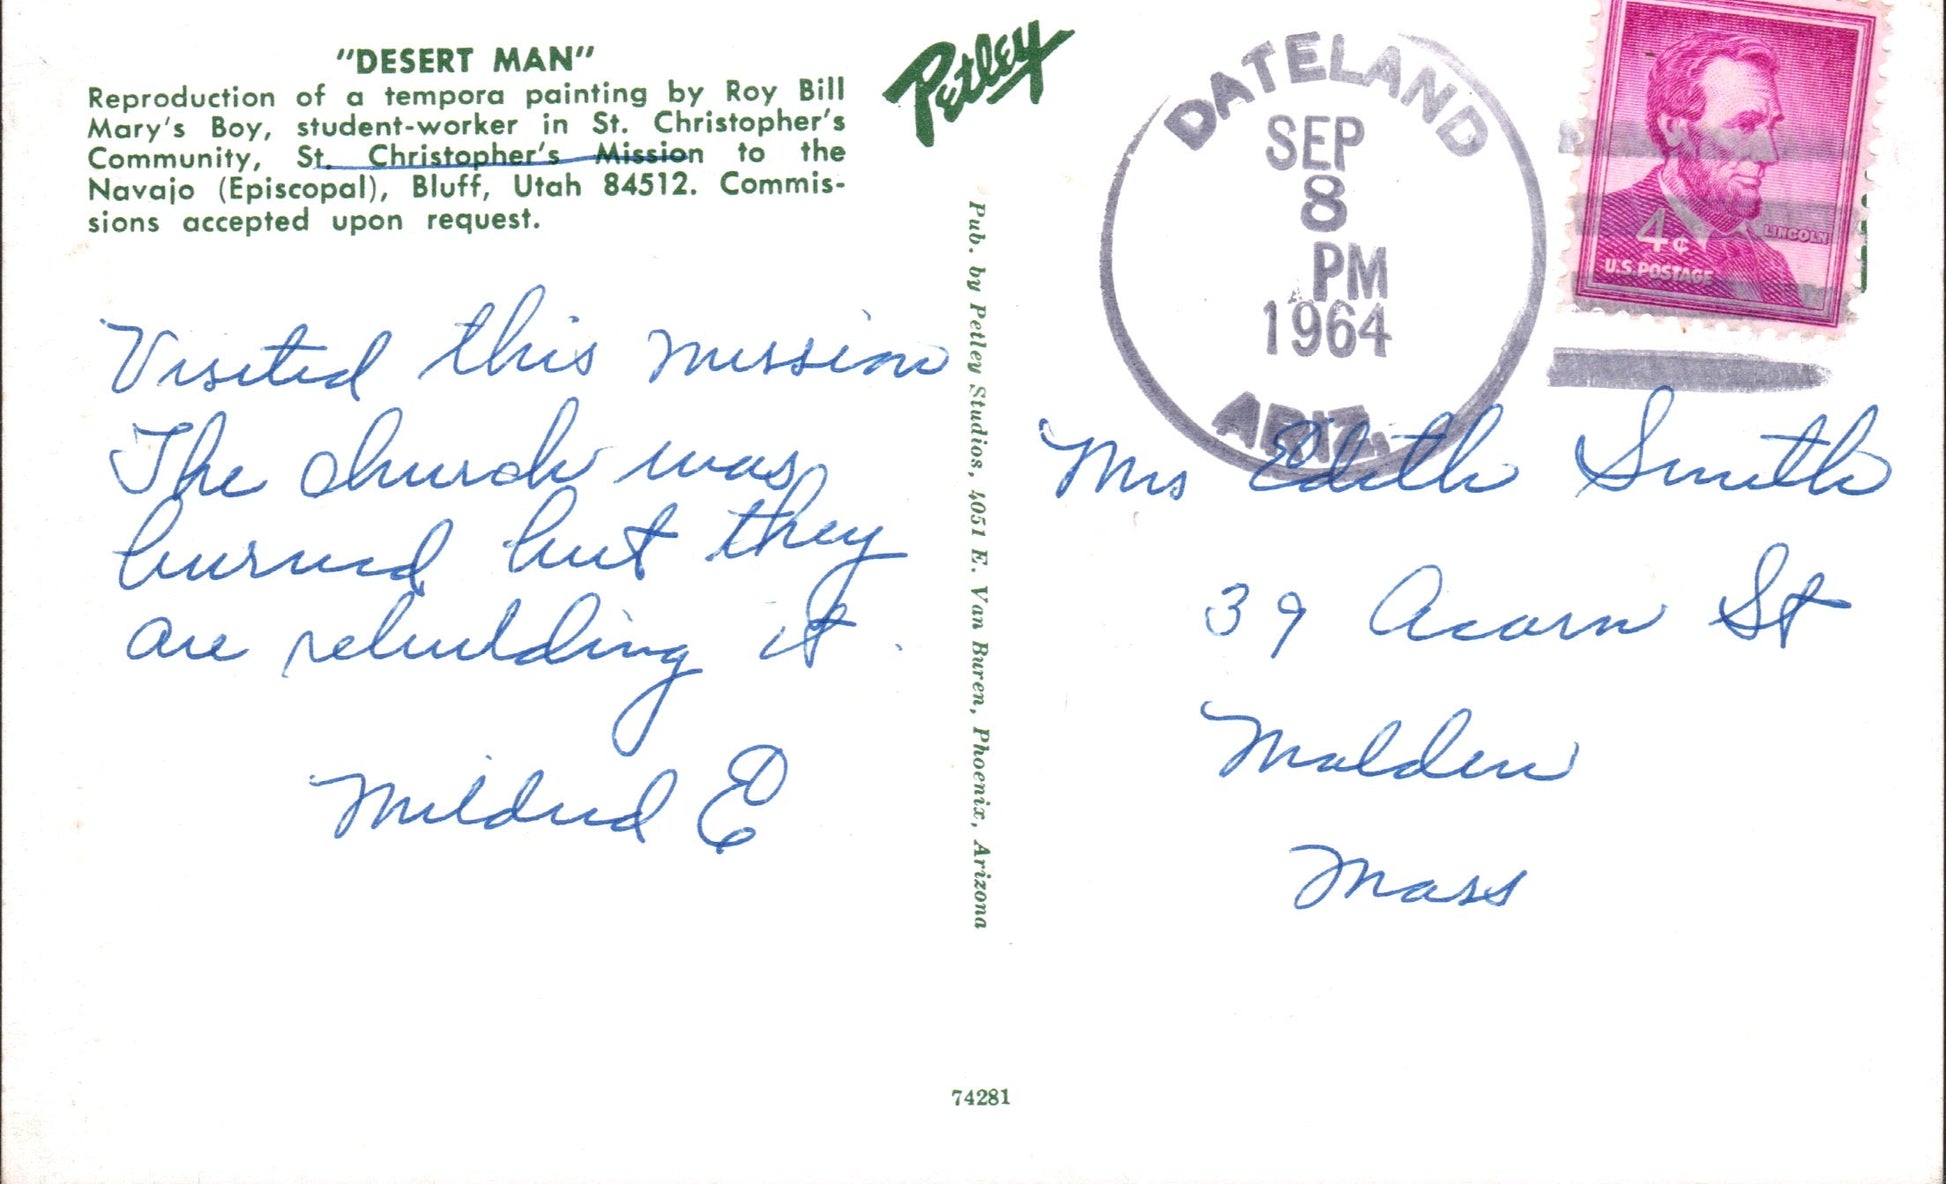 "DESERT MAN"
Reproduction of a tempora painting by Roy Bill
Mary's Boy, student-worker in St. Christopher's
Community, St. Christopher's Mission to the
Navajo (Episcopal), Bluff, Utah 84512. Commis-
sions accepted upon request.
Petley
DATELAND
SEP
8
PM
1964
ARIZ.
4¢
LINCOLN
U.S. POSTAGE
Visited this mission
The church was
burned but they
are rebuilding it.
Mildred E
Pub. by Petley Studios, 4051 E. Van Buren, Phoenix, Arizona
Mrs Edith Smith
39 Acorn St
Malden
Mass
74281